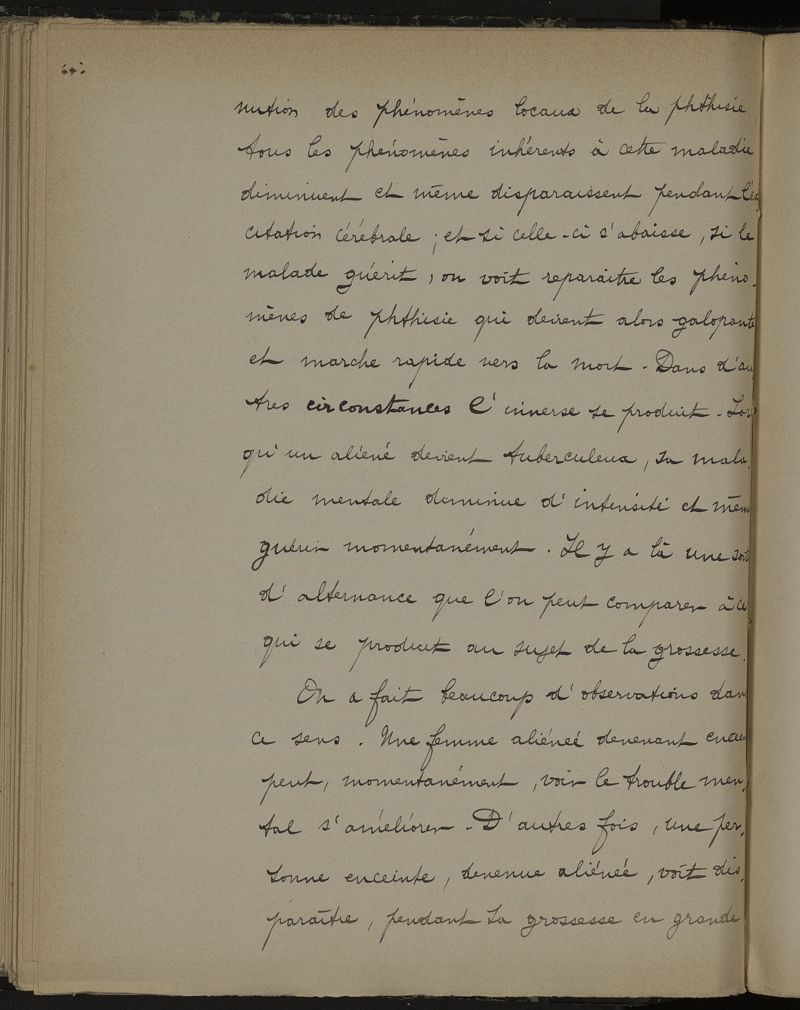 nution des phénomènes locaux de la phthisie,
tous les phénomènes inhérents à cette maladie
diminuent et même disparaissent pendant l'ex
citation cérébrale ; et si celle-ci s'abaisse, si le
malade guérit, on voit reparaître les phéno-
mènes de phthisie qui devient alors galopante
et marche rapide vers la mort - Dans d'au
tres circonstances l'inverse se produit - Lors
qu'un aliéné devient tuberculeux, sa mala-
die mentale diminue d'intensité et même
guérir momentanément. Il y a là une sorte
d'alternance que l'on peut comparer à ce
qui se produit au sujet de la grossesse.
On a fait beaucoup d'observations dans
ce sens. Une femme aliénée devenant
peut, momentanément, voir le trouble men-
tal s'améliorer - D'autres fois, une per-
sonne enceinte, devenue aliénée, voit dis-
paraître, pendant sa grossesse en grande